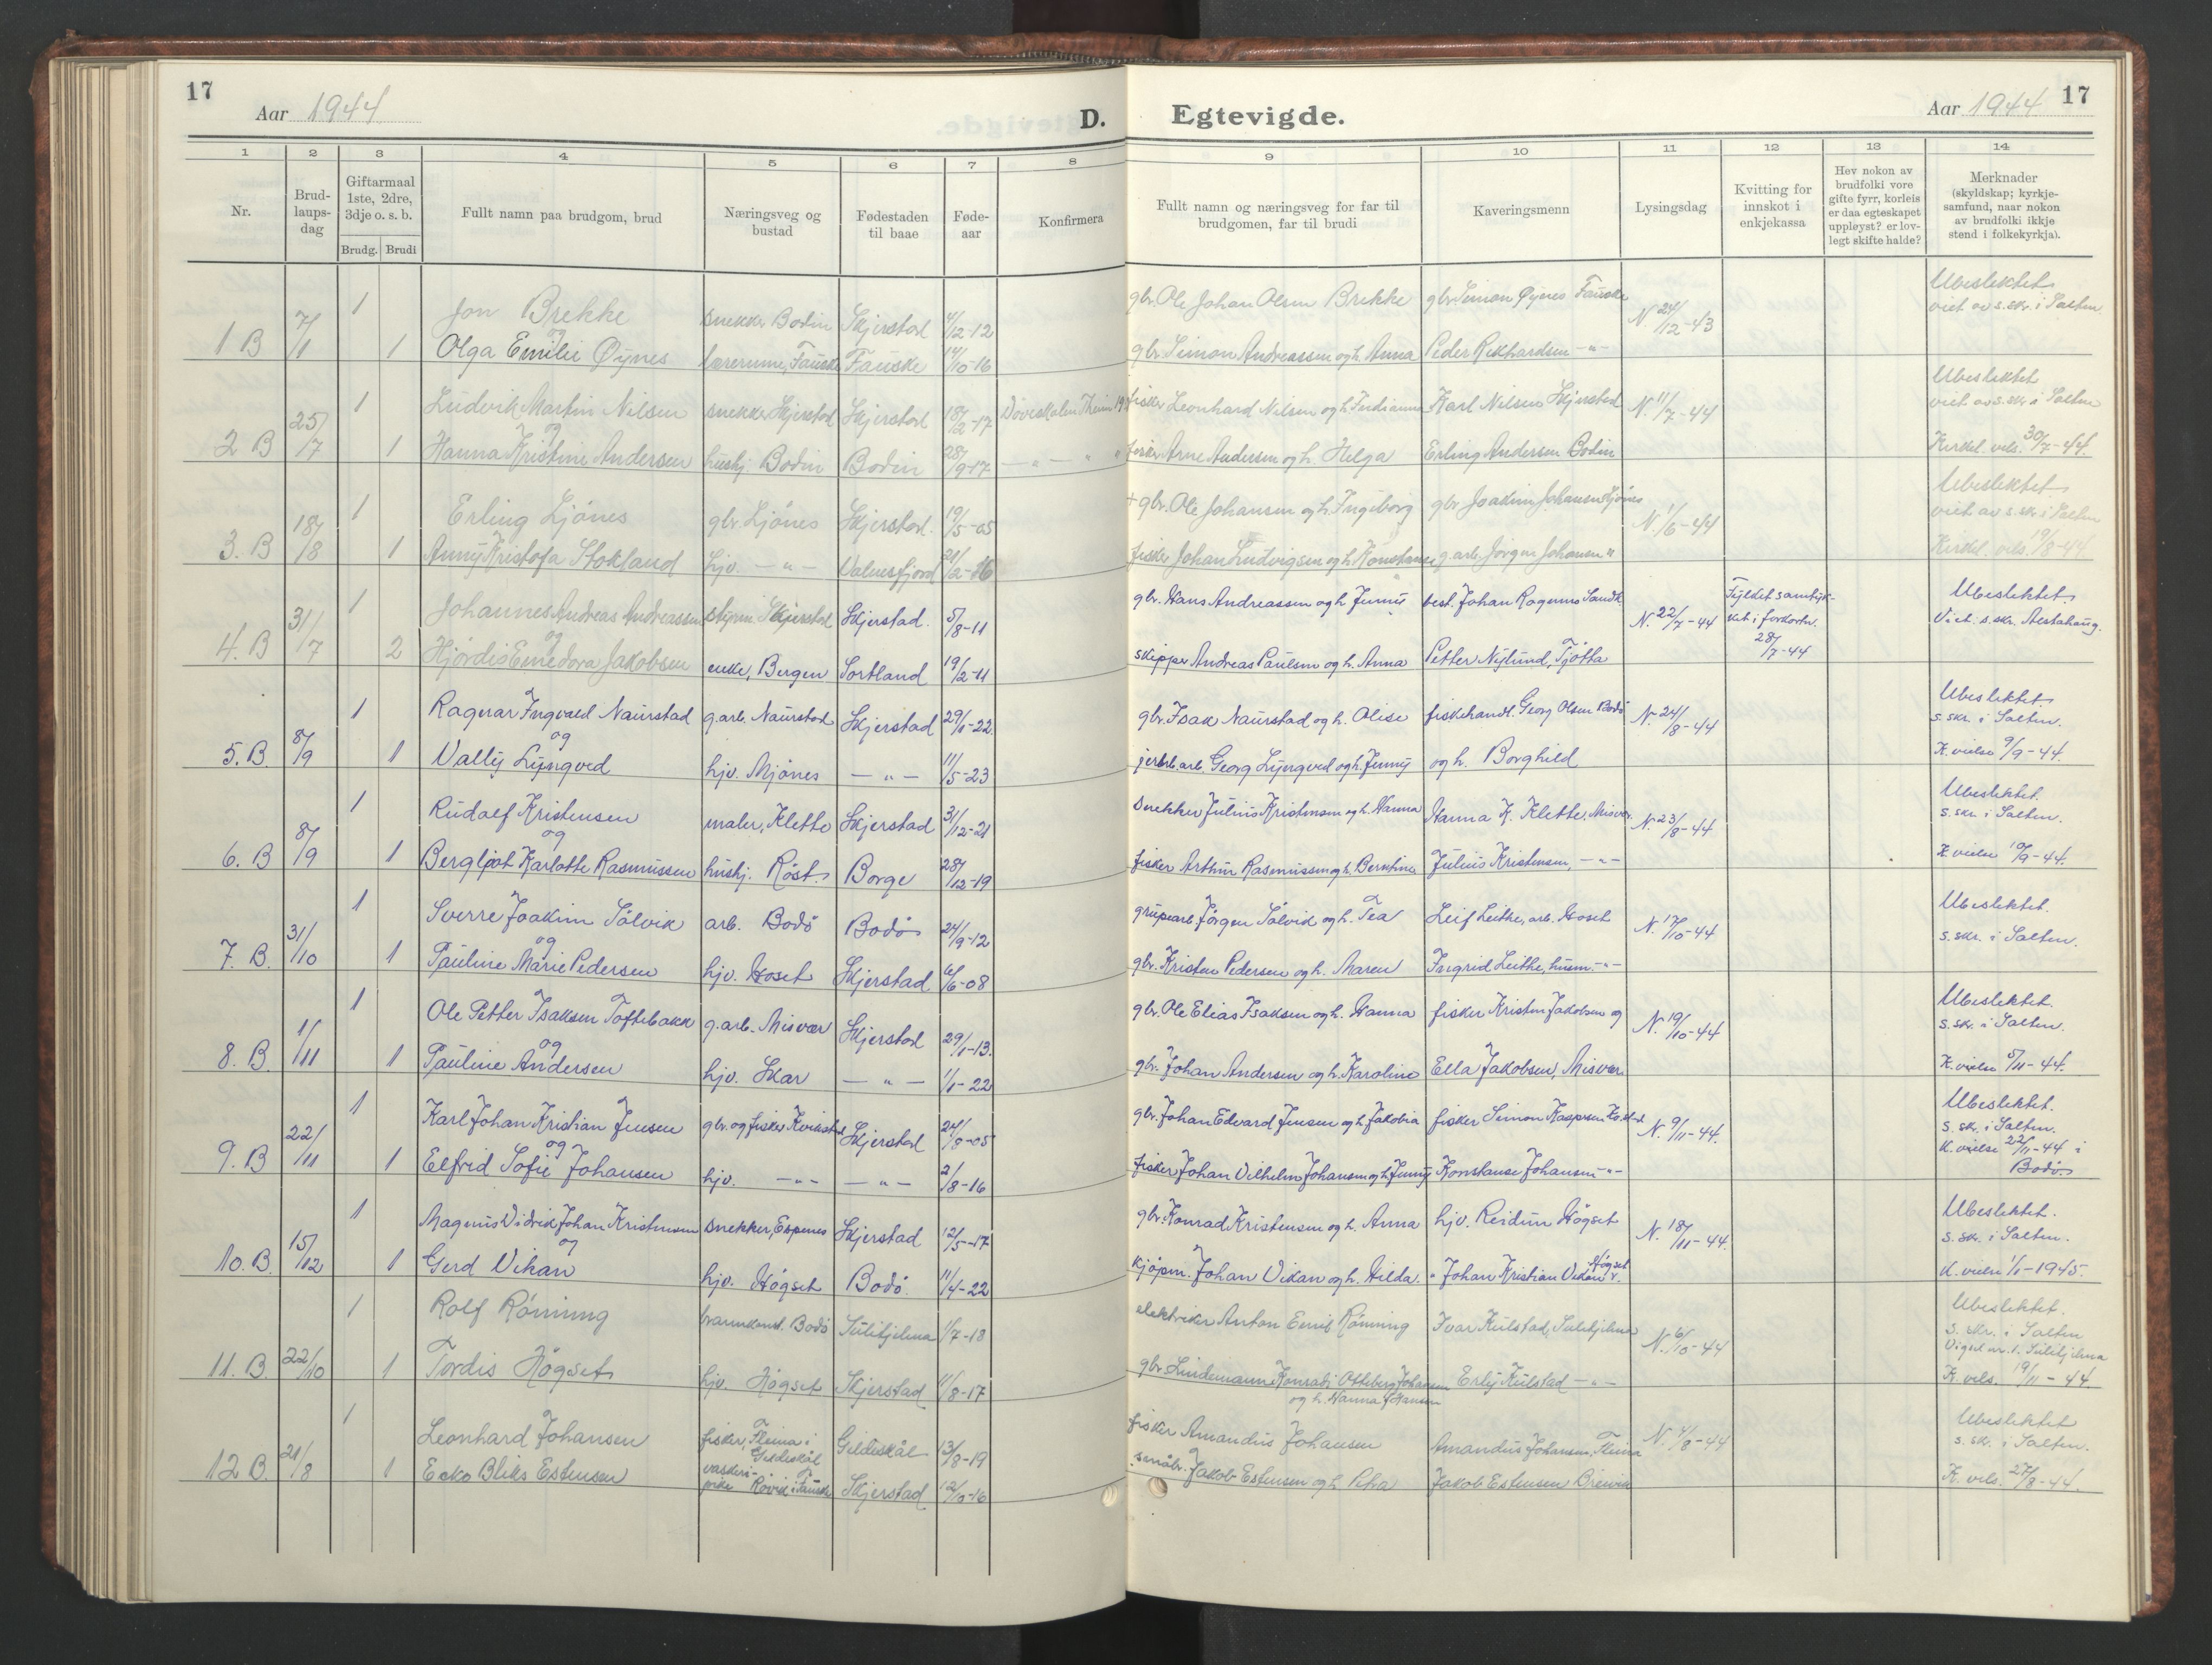 17
Aar 1944
D. Egtevigde.
Aar 1944
17
1 2 3 4 5 6 7 8 9 10 11 12 13 14
Nr.
Brud-
laups-
dag
Giftarmaal
1ste, 2dre,
3dje o. s. b.
Brudg. Brudi
Fullt namn paa brudgom, brud
Næringsveg og
bustad
Fødestaden
til baae
Føde-
aar
Konfirmera
Fullt namn og næringsveg for far til
brudgomen, far til brudi
Kaveringsmenn
Lysingsdag
Kvitting for
innskot i
enkjekassa
Hev nokon av
brudfolki vore
gifte fyrr, korleis
er daa egteskapet
uppløyst? er lov-
legt skifte halde?
Merknader
(skyldskap; kyrkje-
samfund, naar nokon
av brudfolki ikkje
stend i folkekyrkja).
1 Jon Brekke snekker Bodin Skjerstad 4/12-12 gbr. Ole Johan Olsen Brekke gbr. Simon Øynes Fauske N 24/12-43 Ubeslektet
viet av s.skr. i Salten.
og
1 B 7/1 1 Olga Emilie Øynes lærerinne, Fauske Fauske 14/10-16 gbr. Simon Andreassen og h. Anna Peder Rikhardsen -"-
1 Ludvik Martin Nilsen snekker Skjerstad Skjerstad 18/2-17 Døveskolen Fisker Leonhard Nilsen og h. Karl Nilsen Skjerstad N. 11/7-44 Ubeslektet
viet av s.skr. i Salten
og
2 B 25/7 1 Hanna Kristine Andersen hushj. Bodin Bodin 28/9-17 -"- " fisker Arne Andersen og h. Helga Erling Andersen Bodin Kirkel. vels. 30/7-44.
1 Erling Ljønes gbr. Ljønes Skjerstad. 19/5-05 + gbr. Ole Johansen og h. Ingeborg gbr. Joakim Johansen Ljønes N. 1/6-44 Ubeslektet
viet av s.skr. i Salten
3. B 18/8 1 Anny Kristofa Stokland hjv. -"- Valnesfjord 21/2-16 fisker Johan Ludvigsen og h. Konstanse g.arb. Jørgen Johansen " Kirkel. vels. 19/8-44
1 Johannes Andreas Andreassen styrm. Skjerstad Skjerstad. 5/8-11 gbr. Hans Andreassen og h. Jenny best. Johan Ragnus N. 22/7-44 Fylket samtyk-
ket i forkortn.
28/7-44 Ubeslektet.
Viet: s.skr. Alstahaug.
og
4. B 31/7 2 Hjørdis Jakobsen enke, Bergen Sortland 19/2-11 skipper Andreas Paulsen og h. Anna Petter Nylund, Tjøtta
1 Ragnar Ingvald Naurstad g.arb. Naurstad Skjerstad 29/1-22. gbr. Isak Naurstad og h. Olise fiskehandl. Georg Olsen Bodø N. 24/8-44 Ubeslektet.
s.skr. i Salten.
og
5. B. 8/9 1 Vally Lyngved hjv. Mjønes -"- 11/5-23 jernb.arb. Georg Lyngved og h. Jenny og h. Borghild K. vielse 9/9-44.
1 Rudolf Kristensen maler, Klette Skjerstad 31/12-21 snekker Julius Kristensen og h. Hanna Hanna K. Klette, Misvær N. 23/8-44 Ubeslektet.
s.skr. i Salten.
og
6. B 8/9 1 Bergljot Karlotte Rasmussen hushj. Røst. Borge 28/12-19 fisker Arthur Rasmussen og h. Berntine Julius Kristensen, -"- K. vielse 10/9-44.
1 Sverre Joakim Sølvik arb. Bodø Bodø 24/9-12 grupearb Jørgen Sølvik og h. Tea Leif Leithe, arb. Hoset N. 17/10-44 Ubeslektet.
s.skr. i Salten.
og
7. B. 31/10 1 Pauline Marie Pedersen hjv. Hoset Skjerstad 6/6-08 gbr. Kristen Pedersen og h. Maren Ingrid Leithe, husm. -"-
1 Ole Petter Isaksen Toftebakk g.arb. Misvær Skjerstad 29/1-13. gbr. Ole Elias Isaksen og h. Hanna fisker Kristen Jakobsen og N. 19/10-44 Ubeslektet.
s.skr. i Salten.
og
8. B. 1/11 1 Pauline Andersen hjv. Skar -"- 1/1-22 gbr. Johan Andersen og h. Karoline Ella Jakobsen, Misvær K. vielse 5/11-44.
1 Karl Johan Kristian Jensen gbr. og fisker Skjerstad 24/8-05 gbr. Johan Edvard Jensen og h. Jakobia fisker Simon Kaspersen N. 9/11-44. Ubeslektet.
s.skr. i Salten.
og
9. B 22/11 1 Elfrid Sofie Johansen hjv. -"- -"- 2/8-16 fisker Johan Vilhelm Johansen og h. Jenny Konstanse Johansen -"- K. vielse 22/11-44 i
Bodø.
1 Magnus Vidvik Johan Kristensen snekker, Espenes Skjerstad 12/5-17 gbr. Konrad Kristensen og h. Anna hjv. Reidun Høgset N. 18/11-44. Ubeslektet.
s.skr. i Salten.
og
10. B. 15/12 1 Gerd Vikan hjv. Høgset Bodø. 11/4-22 kjøpm. Johan Vikan og h. Hilda. " Johan Kristian Vikan Høgset K. vielse 1/1-1945.
1 Rolf Rønning Bodø Sulitjelma 1/7-18 elektriker Anton Emil Rønning Ivar Kulstad, Sulitjelma N. 6/10-44 Ubeslektet.
S.skr. i Salten
Vigsel nr. 1. Sulitjelma
11. B. 22/10 1 Tordis Høgset hjv. Høgset Skjerstad 11/8-17 gbr. Lindemann Konradi Otteberg Johansen
og h. Hanna f. Hansen Erly Kulstad -"- K. vels. 19/11-44.
1 Leonhard Johansen fisker, Fleina i
Gildeskål Gildeskål 13/8-19 fisker Amandus Johansen Amandus Johansen, Fleina N. 4/8-44 Ubeslektet
s.sk. i Salten.
12 B. 21/8 1 Ecko Bliks Estensen vaskeri-
pike Røvik i Fauske Skjerstad 12/10-16 småbr. Jakob Estensen og h. Petra Jakob Estensen Breivik K. vels. 27/8-44.